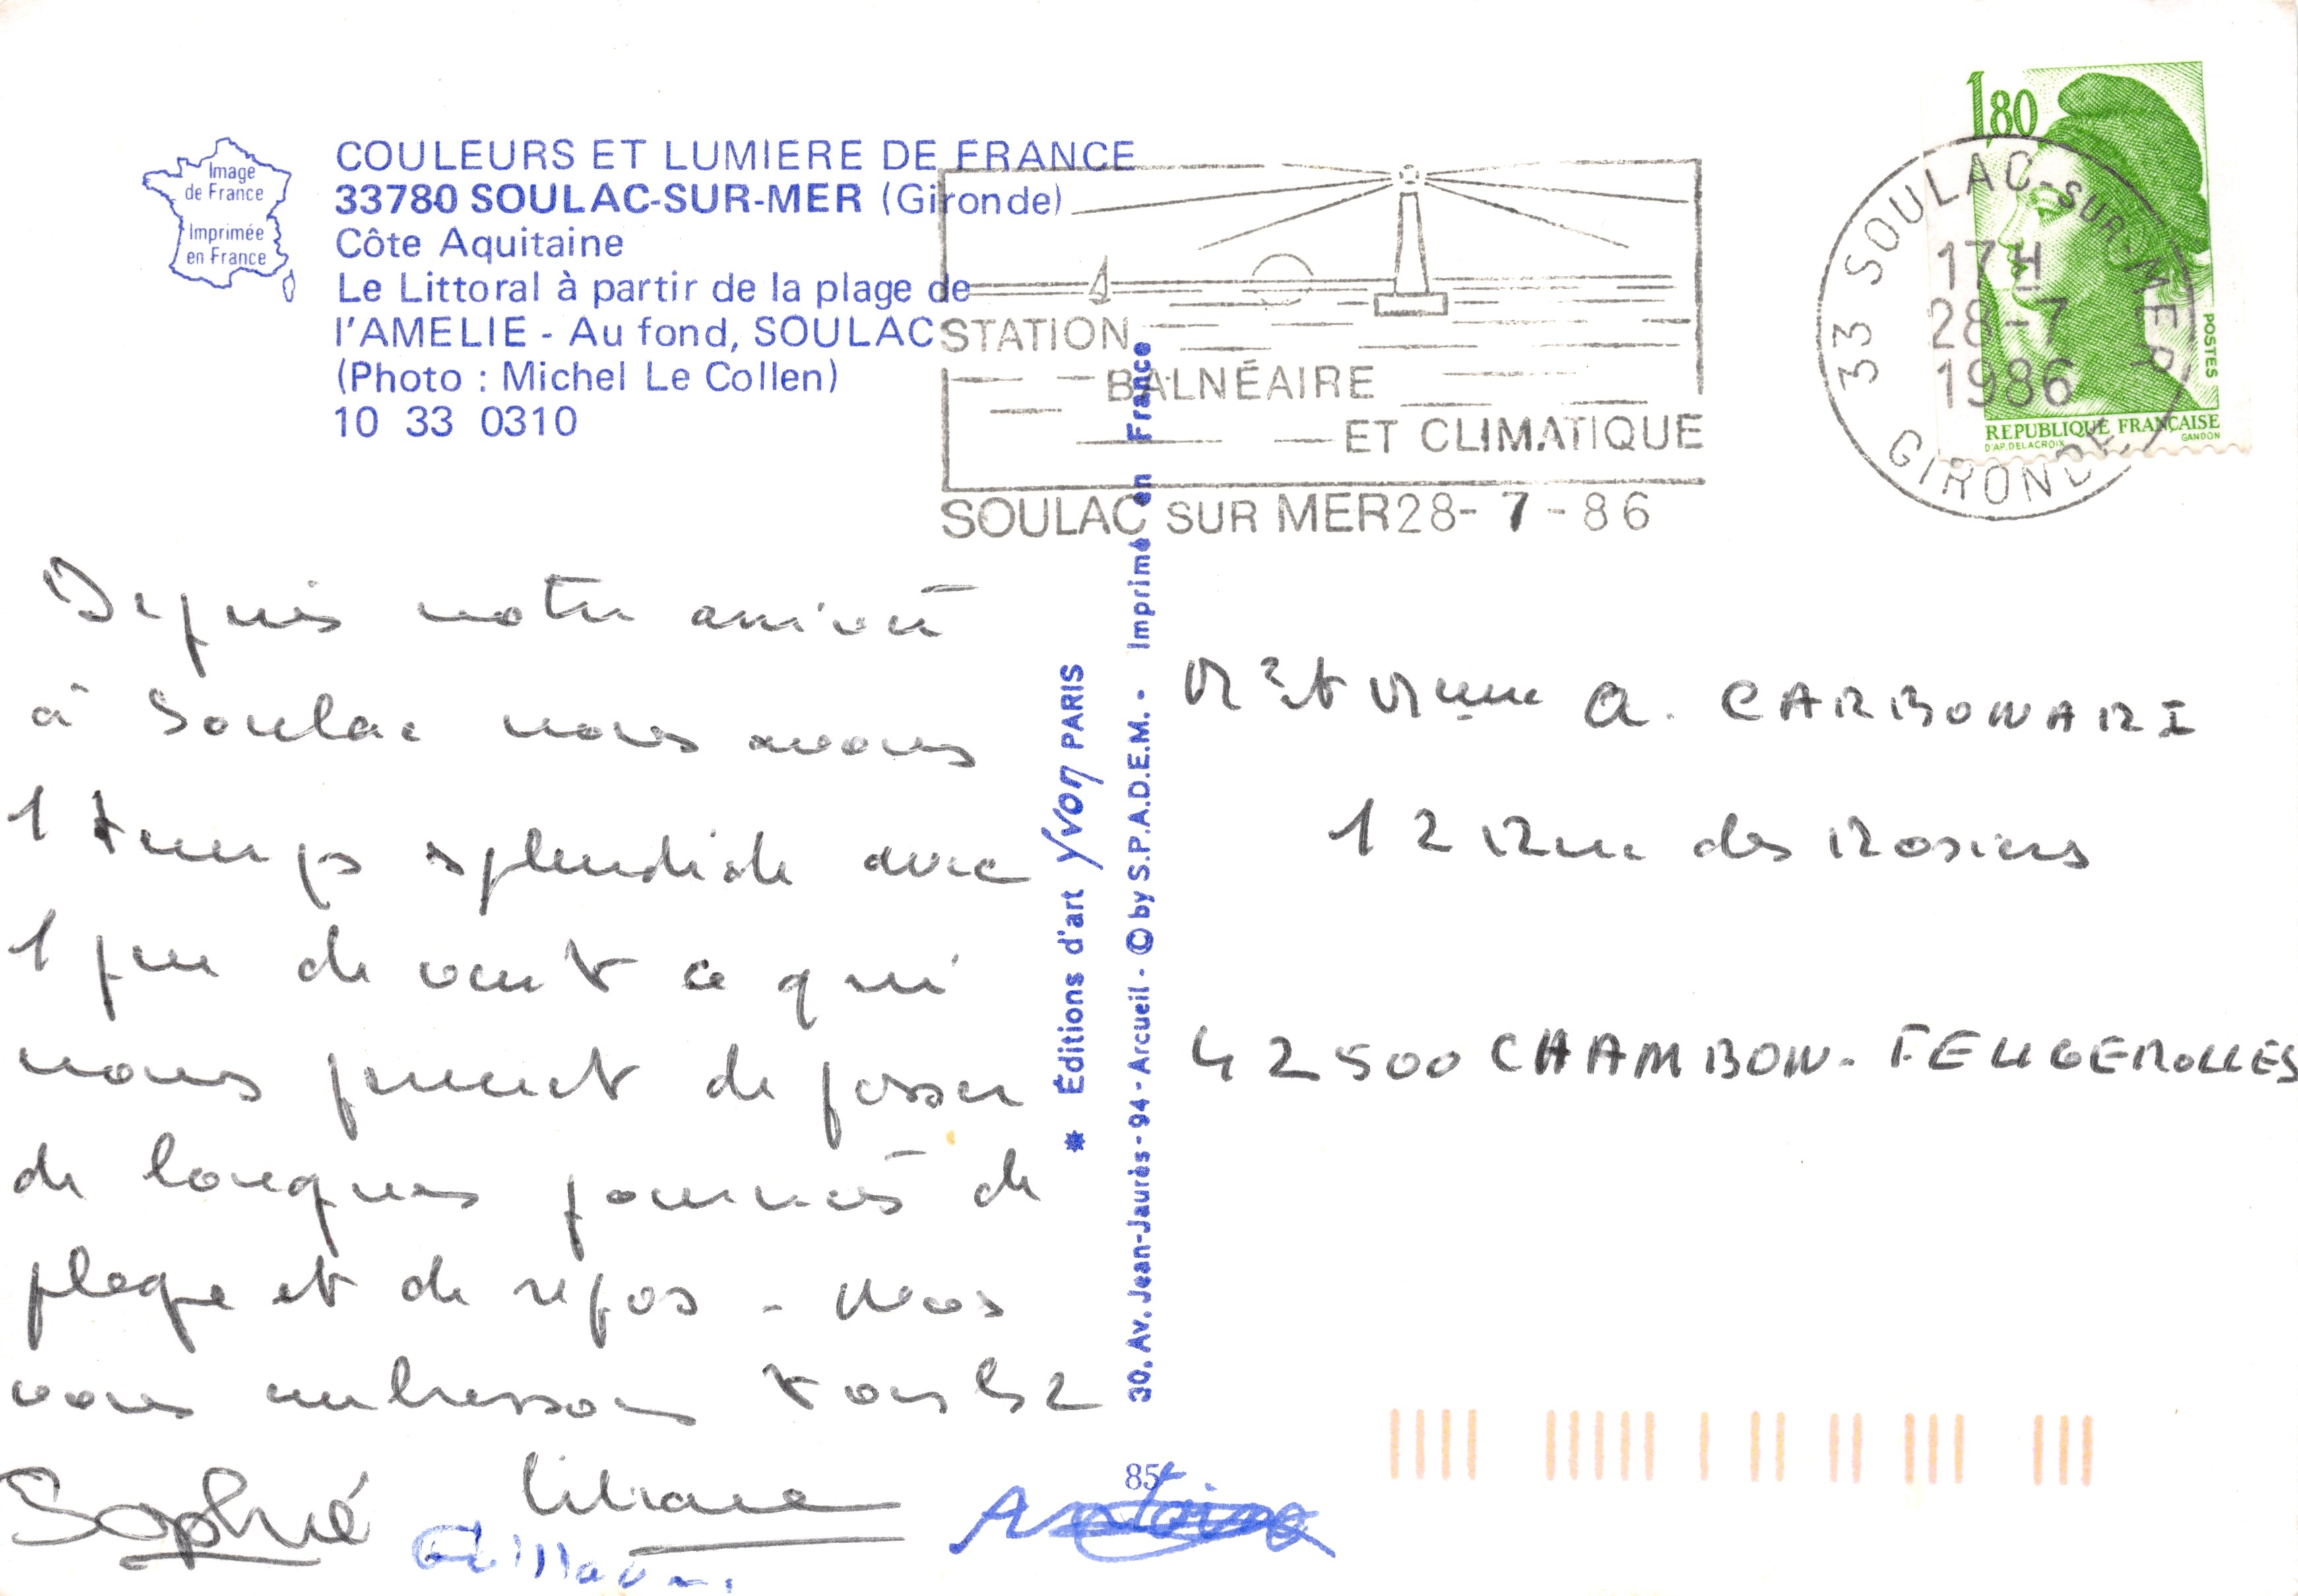 Image
de France
Imprimée
en France
COULEURS ET LUMIERE DE FRANCE
33780 SOULAC-SUR-MER (Gironde)
Côte Aquitaine
Le Littoral à partir de la plage de
l'AMELIE - Au fond, SOULAC
(Photo : Michel Le Collen)
10 33 0310
STATION
BALNÉAIRE
ET CLIMATIQUE
SOULAC SUR MER 28-7-86
1,80
POSTES
REPUBLIQUE FRANÇAISE
D'AP. DELACROIX GANDON
33 SOULAC-SUR-MER
17H
28-7
1986
GIRONDE
Depuis notre arrivée
à Soulac nous avons
1 temps splendide avec
1 peu de vent ce qui
nous permet de passer
de longues journées de
plage et de repos - Nous
vous embrassons tous les 2
Sophie
Liliane
Guillaume
Antoine
* Éditions d'art Yvon PARIS
30, Av. Jean-Jaurès - 94 - Arcueil - © by S.P.A.D.E.M. - Imprimé en France
85
Mr et Mme A. CARBONARI
12 Rue des Rosiers
42500 CHAMBON-FEUGEROLLES